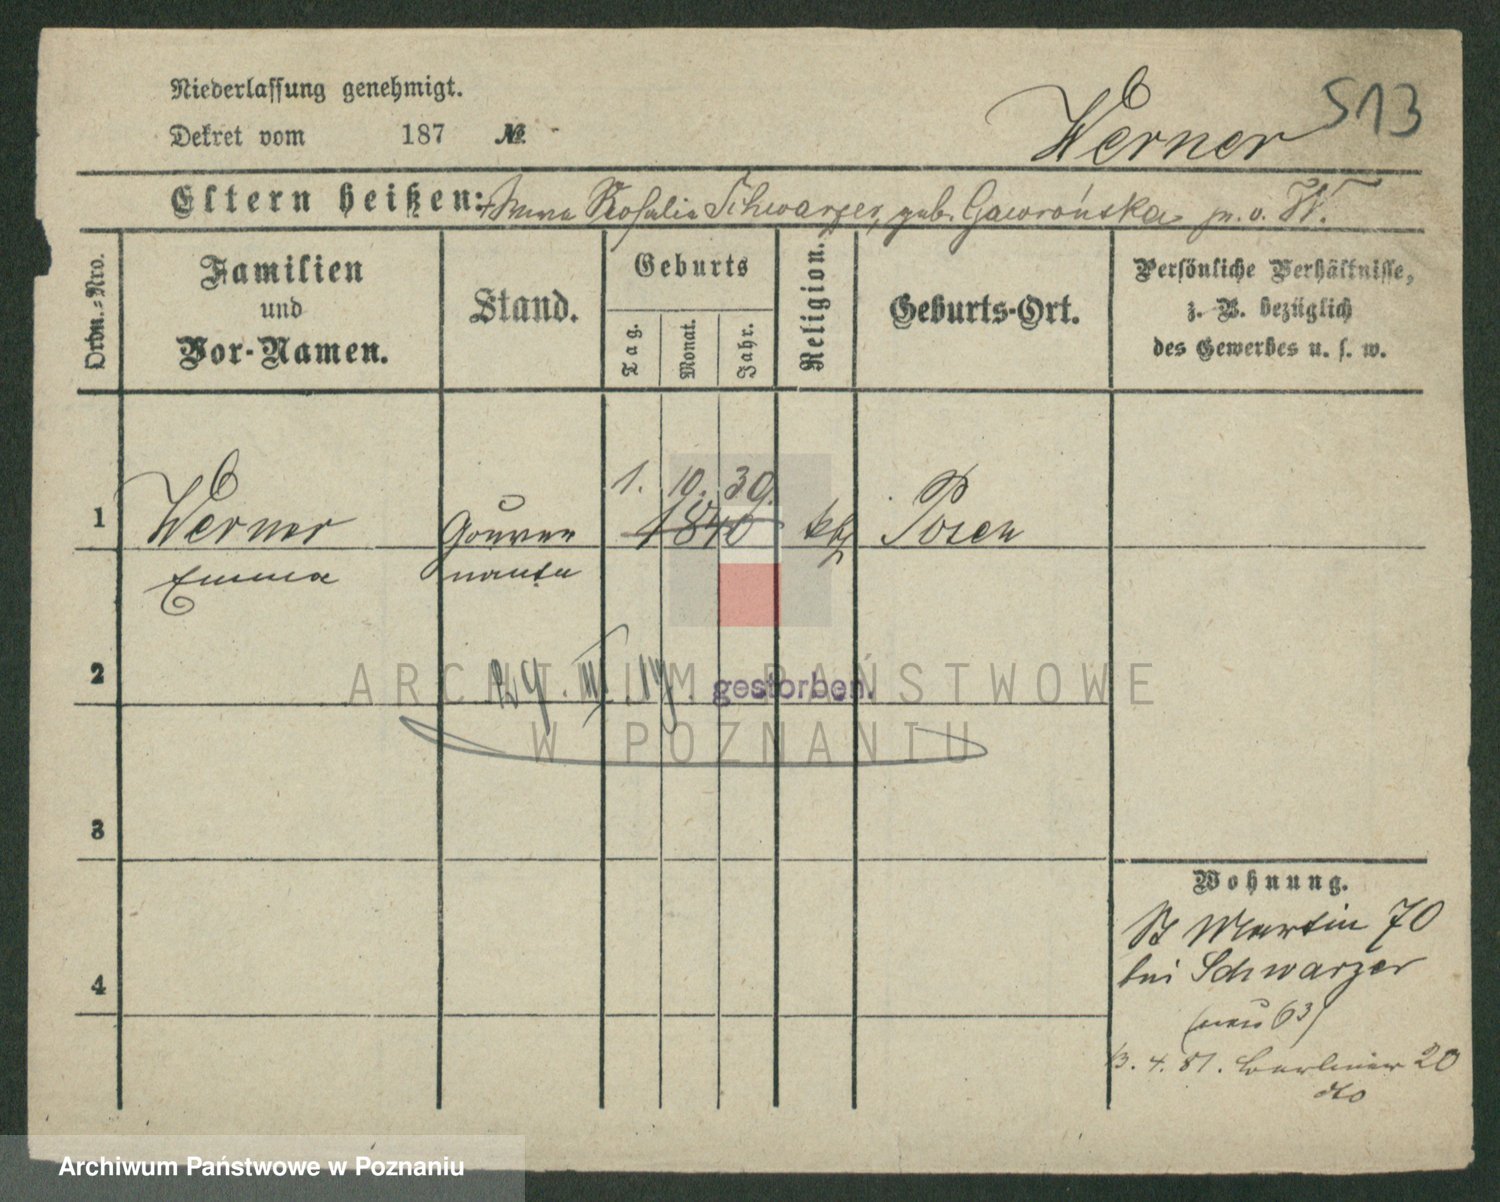 Niederlassung genehmigt.
Dekret vom 187 №
Werner 513
Eltern heißen: Anna Rosalia Schwarzer, geb. Gawrońska
Ordn.-Nro.
Familien
und
Vor-Namen.
Stand.
Geburts
Tag.
Monat.
Jahr.
Religion.
Geburts-Ort.
Persönliche Verhältnisse,
z. B. bezüglich
des Gewerbes u. s. w.
1. 10. 39.
1 Werner Gouver 1840 kth Posen
Emma nante
2
29. III. 17. gestorben.
ARCHIWUM PAŃSTWOWE
W POZNANIU
3
Wohnung.
St Martin 70
bei Schwarzer
4
(neu 63)
13. 4. 81. Berliner 20
dto
Archiwum Państwowe w Poznaniu